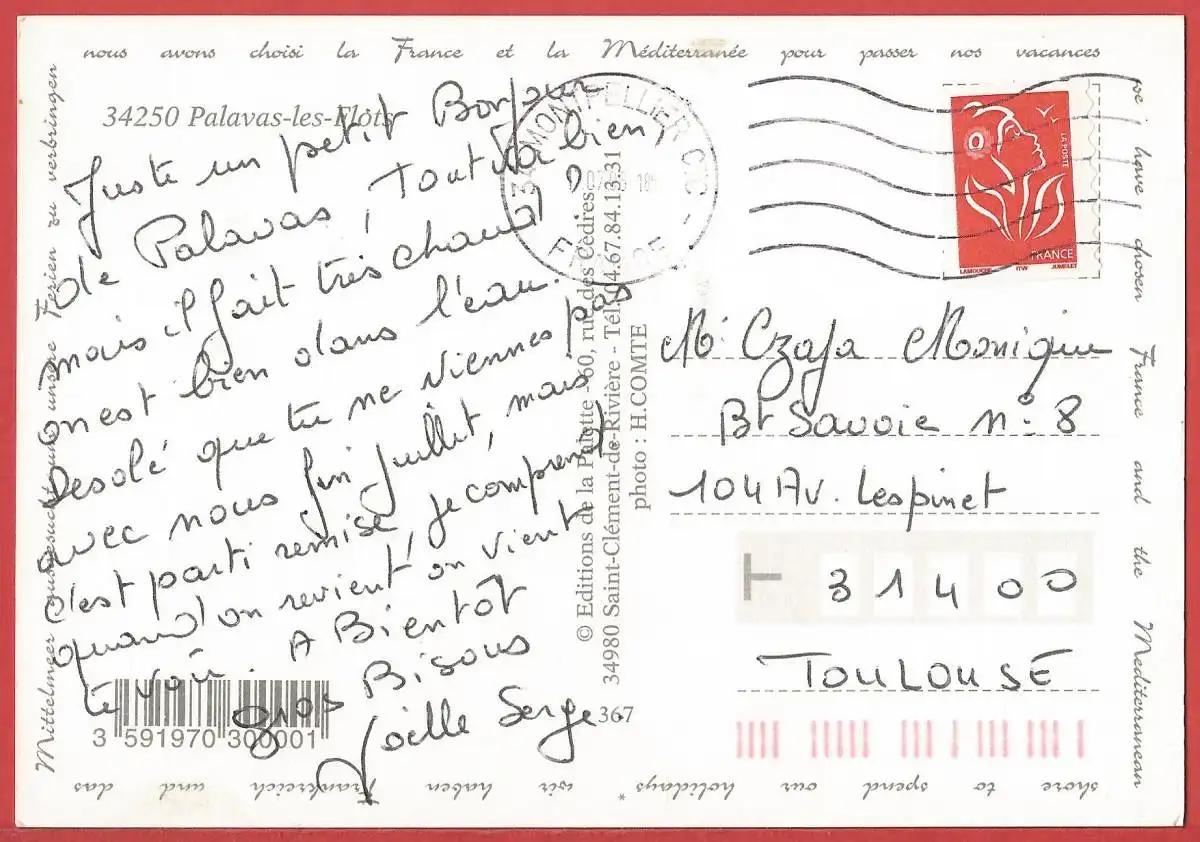 nous avons choisi la France et la Méditerranée pour passer nos vacances
we have chosen France and the Mediterranean
shore to spend our holidays * wir haben Frankreich und das
Mittelmeer ausgesucht um unsere Ferien zu verbringen
34250 Palavas-les-Flots
Juste un petit Bonjour
de Palavas, Tout va bien,
mais il fait très chaud !
on est bien dans l'eau.
Desolé que tu ne viennes pas
avec nous fin juillet, mais
c'est parti remise, je comprend,
quand on revient on vient
te voir. A Bientôt
gros Bisous
Joëlle Serge.
3 591970 300001
© Editions de la Palette - 60, rue des Cèdres
34980 Saint-Clément-de-Rivière - Tél. 04.67.84.13.31
photo : H.COMTE
367
34 MONTPELLIER CTC
18
FRANCE
LA POSTE
FRANCE
LAMOUCHE ITVF JUMELET
M. Czaja Monique
Bt Savoie n° 8
104 Av. Lespinet
31400
TOULOUSE